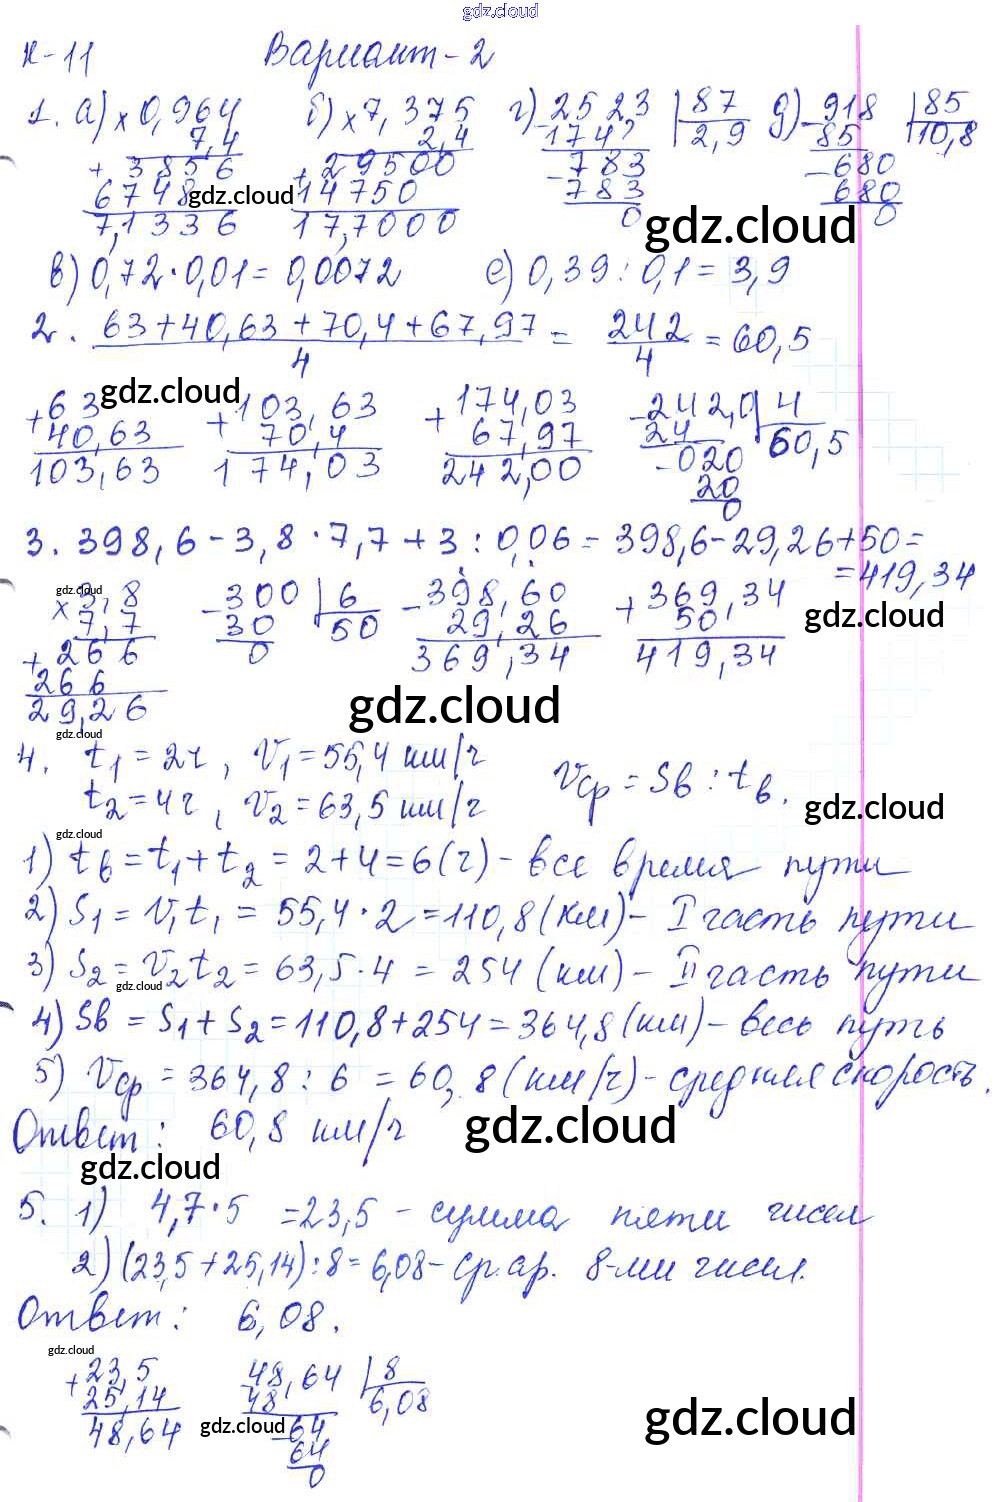 gdz.cloud
К-11 Вариант-2
1. а) × 0,964 б) × 7,375 г) - 2523 | 87 д) - 918 | 85
7,4 2,4 174? 2,9 85 10,8
+ 3856 + 29500 - 783 - 680
6748 14750 783 680
7,1336 17,7000 0 0
gdz.cloud gdz.cloud
в) 0,72·0,01=0,0072 е) 0,39:0,1=3,9
2. (63+40,63+70,4+67,97)/4 = 242/4 = 60,5
gdz.cloud
+ 63 + 103,63 + 174,03 - 242,0 | 4
40,63 70,4 67,97 24 60,5
103,63 174,03 242,00 - 020
20
0
3. 398,6-3,8·7,7+3:0,06=398,6-29,26+50=
=419,34
gdz.cloud gdz.cloud
× 3,8 - 300 | 6 - 398,60 + 369,34
7,7 30 50 29,26 50
+ 266 0 369,34 419,34
266
29,26
gdz.cloud gdz.cloud
4. t1=2ч, V1=55,4 км/ч
t2=4ч, V2=63,5 км/ч Vср=Sв:tв.
gdz.cloud gdz.cloud
1) tв=t1+t2=2+4=6(ч)-все время пути
2) S1=V1t1=55,4·2=110,8(км)-I часть пути
3) S2=V2t2=63,5·4=254(км)-II часть пути
gdz.cloud
4) Sв=S1+S2=110,8+254=364,8(км)-весь путь
5) Vср=364,8:6=60,8(км/ч)-средняя скорость.
Ответ: 60,8 км/ч
gdz.cloud gdz.cloud
5. 1) 4,7·5=23,5-сумма пяти чисел
2) (23,5+25,14):8=6,08-ср.ар. 8-ми чисел.
Ответ: 6,08.
gdz.cloud
+ 23,5 48,64 | 8
25,14 48 6,08
48,64 - 64
64
0
gdz.cloud gdz.cloud